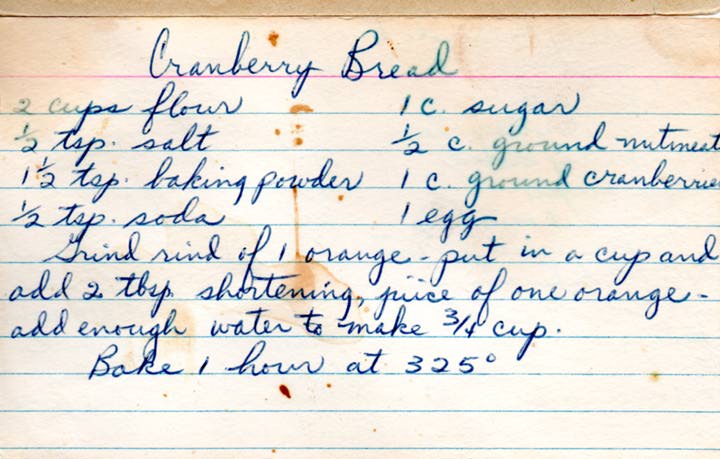 Cranberry Bread
2 cups flour 1 c. sugar
½ tsp. salt ½ c. ground nutmeat
1½ tsp. baking powder 1 c. ground cranberrie
½ tsp. soda 1 egg
Grind rind of 1 orange - put in a cup and
add 2 tbsp. shortening, juice of one orange -
add enough water to make ¾ cup.
Bake 1 hour at 325°